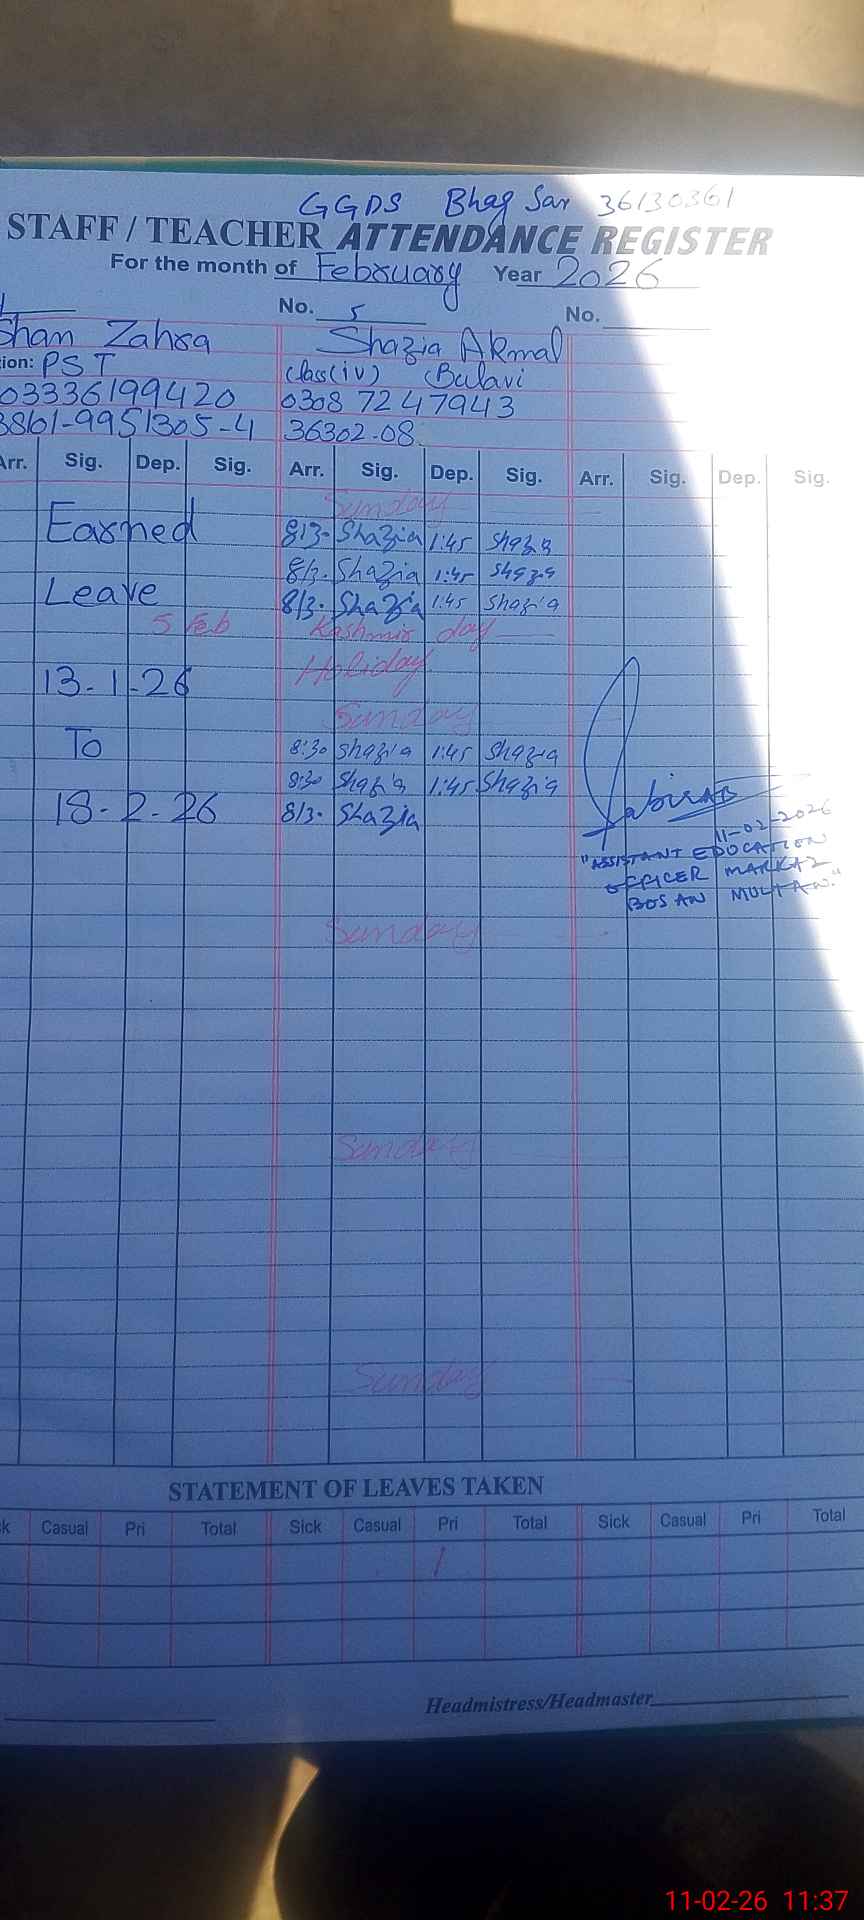 GGDS Bhag Sar 36130361
STAFF / TEACHER ATTENDANCE REGISTER
For the month of February Year 2026
No. 5 No.
Zahra Shazia Akmal
ion: PST Class(iv) Bulavi
03336199420 0308 7247943
38101-9951305-4 36302-08
Arr. Sig. Dep. Sig. Arr. Sig. Dep. Sig. Arr. Sig. Dep. Sig.
Sunday
Earned 8/3. Shazia 1:45 Shazia
8/3. Shazia 1:45 Shazia
Leave 8/3. Shazia 1:45 Shazia
5 Feb Kashmir day
13-1-26 Holiday
Sunday
To 8:30 Shazia 1:45 Shazia
8:30 Shazia 1:45 Shazia
18-2-26 8/3. Shazia
11-02-2026
"ASSISTANT EDUCATION
OFFICER MARKAZ
BOSAN MULTAN."
Sunday
Sunday
Sunday
STATEMENT OF LEAVES TAKEN
k Casual Pri Total Sick Casual Pri Total Sick Casual Pri Total
1
Headmistress/Headmaster
11-02-26 11:37